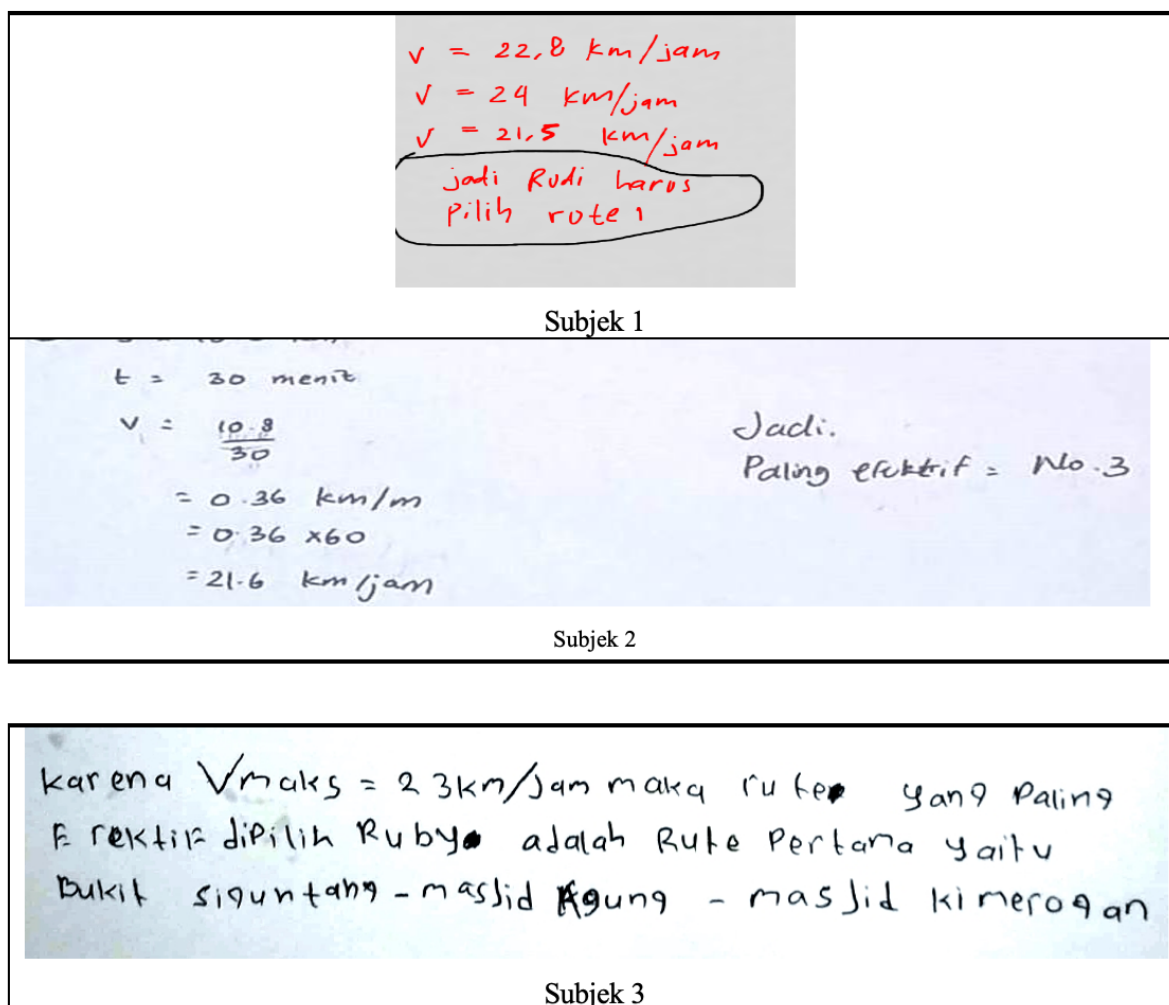 v = 22,8 km/jam
v = 24 km/jam
v = 21,5 km/jam
jadi Rudi harus
pilih rute 1
Subjek 1
t = 30 menit
v = 10.8
30
= 0.36 km/m
= 0.36 x60
= 21.6 km/jam
Jadi.
Paling efektif = No.3
Subjek 2
karena Vmaks = 23km/Jam maka rute yang Paling
Efektif diPilih Ruby adalah Rute Pertama yaitu
Bukit siguntang - masjid Agung - masjid ki merogan
Subjek 3